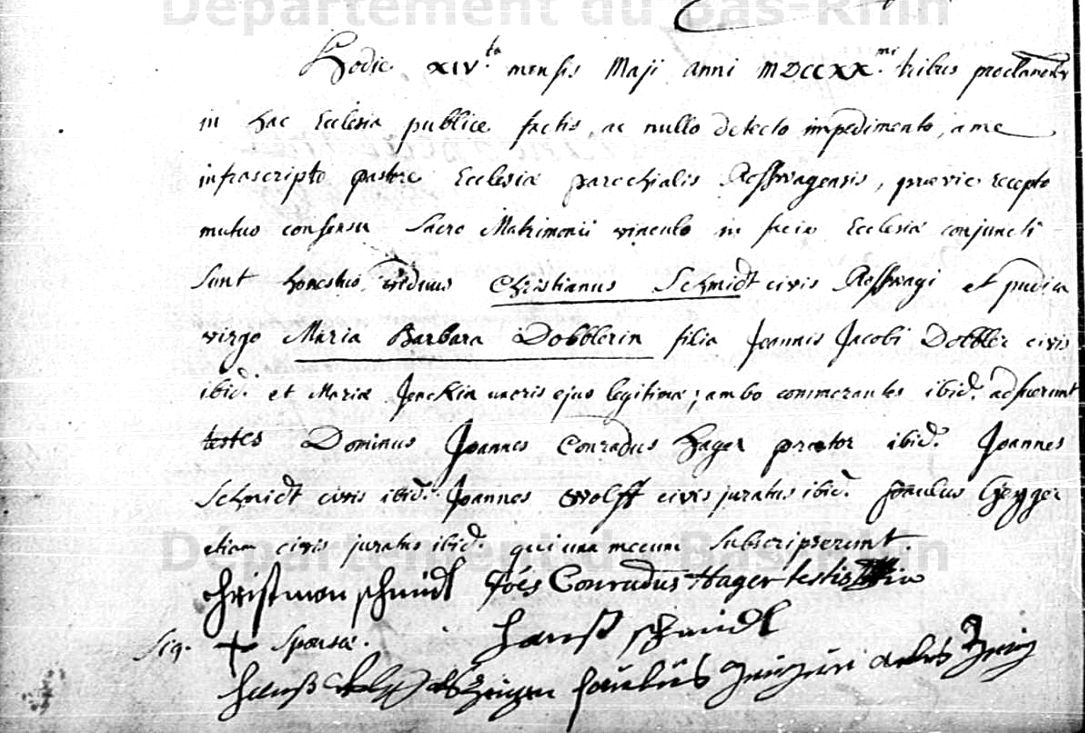 Département du Bas-Rhin
Hodie XIV.ta mensis Maji anni MDCCXX.mi tribus proclamationibus
in hac Ecclesia publice factis, ac nullo detecto impedimento, a me
infrascripto pastore Ecclesiæ parochialis Reschwagensis, prævie recepto
mutuo consensu Sacro Matrimonii vinculo in facie Ecclesiæ conjuncti
sunt honestus viduus Christianus Schmidt civis Reschwagi et pudica
virgo Maria Barbara Dobblerin filia Joannis Jacobi Dobbler civis
ibid. et Mariæ uxoris ejus legitima; ambo commorantes ibid. adfuerunt
testes Dominus Joannes Conradus Hager prætor ibid. Joannes
Schmidt civis ibid. Joannes Wolff civis juratus ibid. Paulus
etiam civis juratus ibid. qui una mecum subscripserunt.
Département du Bas-Rhin
christman schmidt Joes Conradus Hager testis
Sig. + Sponsæ. hanß schmidt
hanß als zeugen paulus als zeig